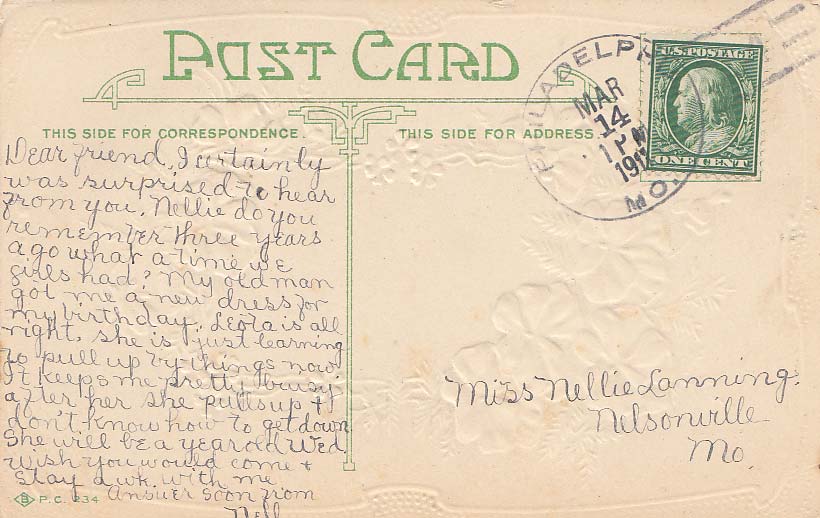 POST CARD
THIS SIDE FOR CORRESPONDENCE.
THIS SIDE FOR ADDRESS.
PHILADELPH
MO.
MAR
14
1 PM
191
U.S. POSTAGE
ONE CENT
Dear friend, I certainly
was surprised to hear
from you. Nellie do you
remember three years
ago what a time we
girls had? My old man
got me a new dress for
my birthday. Leota is all
right. She is just learning
to pull up by things now.
It keeps me pretty busy
after her she pulls up +
don't know how to get down
She will be a year old Wed.
Wish you would come +
stay a wk. with me.
Answer soon from
Nell
Miss Nellie Lanning.
Nelsonville
Mo.
B P.C. 234